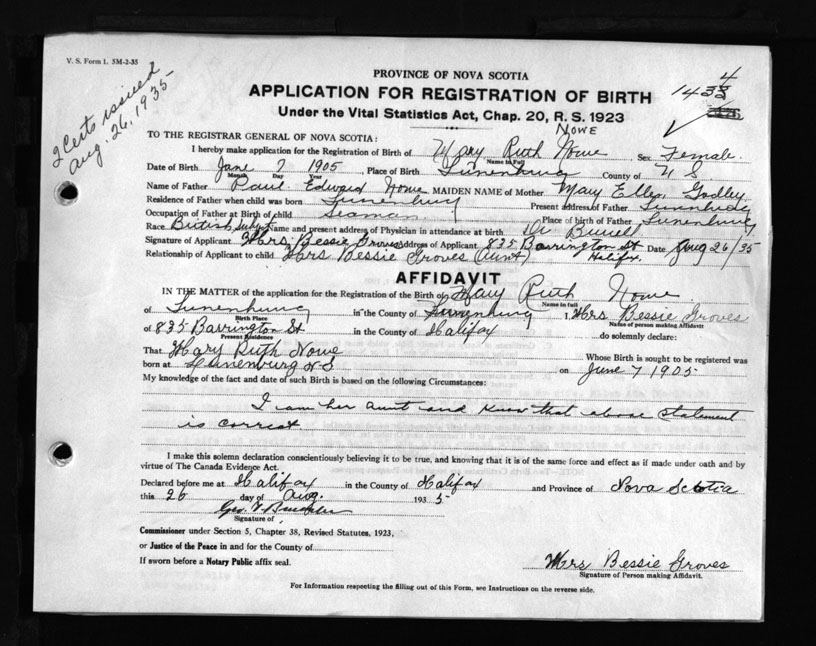 V. S. Form 1. 5M-2-35
2 Certs issued
Aug. 26, 1935
PROVINCE OF NOVA SCOTIA
APPLICATION FOR REGISTRATION OF BIRTH
Under the Vital Statistics Act, Chap. 20, R. S. 1923
1434
TO THE REGISTRAR GENERAL OF NOVA SCOTIA:
NOWE
I hereby make application for the Registration of Birth of Mary Ruth Nowe Sex Female.
Name in Full
Date of Birth June 7 1905, Place of Birth Lunenburg County of N S
Month Day Year
Name of Father Paul Edward Nowe MAIDEN NAME of Mother Mary Ellen Godley
Residence of Father when child was born Lunenburg Present address of Father Lunenburg
Occupation of Father at Birth of child Seaman Place of birth of Father Lunenburg
Race British Subject Name and present address of Physician in attendance at birth Dr Burrell
Signature of Applicant Mrs Bessie Groves Address of Applicant 835 Barrington St Halifax. Date Aug 26/35
Relationship of Applicant to child Mrs Bessie Groves (Aunt)
AFFIDAVIT
IN THE MATTER of the application for the Registration of the Birth of Mary Ruth Nowe
Name in full
of Lunenburg in the County of Lunenburg I, Mrs Bessie Groves
Birth Place Name of person making Affidavit
of 835 Barrington St in the County of Halifax do solemnly declare:
Present Residence
That Mary Ruth Nowe Whose Birth is sought to be registered was
born at Lunenburg N S on June 7 1905
My knowledge of the fact and date of such Birth is based on the following Circumstances:
I am her aunt and know that above statement
is correct
I make this solemn declaration conscientiously believing it to be true, and knowing that it is of the same force and effect as if made under oath and by
virtue of The Canada Evidence Act.
Declared before me at Halifax in the County of Halifax and Province of Nova Scotia
this 26 day of Aug. 1935
Geo.
Signature of
Commissioner under Section 5, Chapter 38, Revised Statutes, 1923,
or Justice of the Peace in and for the County of
If sworn before a Notary Public affix seal.
Mrs Bessie Groves
Signature of Person making Affidavit.
For Information respecting the filling out of this Form, see Instructions on the reverse side.